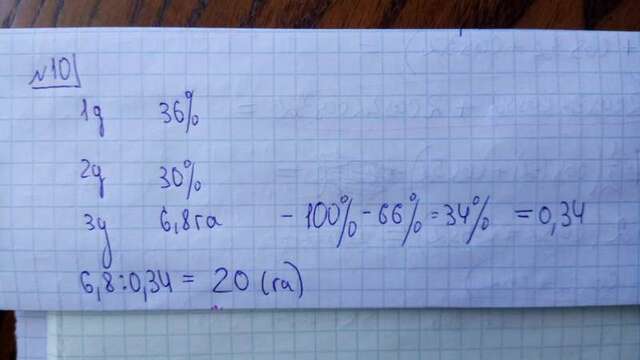 №10
1д 36%
2д 30%
3д 6,8га - 100% - 66% = 34% = 0,34
6,8:0,34 = 20 (га)